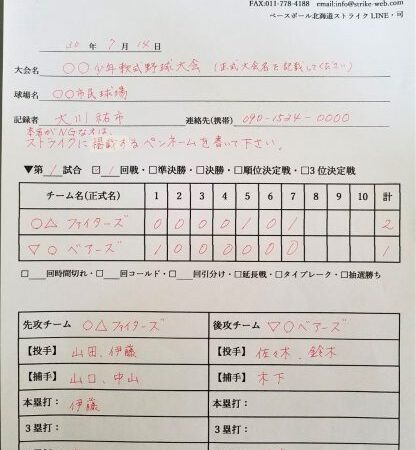 FAX:011-778-4188 email:info@strike-web.com
ベースボール北海道ストライク LINE・司
30 年 7 月 14 日
大会名 〇〇少年軟式野球大会 (正式大会名を記載してください)
球場名 〇〇市民球場
記録者 大川祐市 連絡先(携帯) 090-1524-0000
本名がNGな方は、
ストライクに掲載するペンネームを書いて下さい。
▼第 1 試合 ☑ 1 回戦・□準決勝・□決勝・□順位決定戦・□3位決定戦
チーム名(正式名) 1 2 3 4 5 6 7 8 9 10 計
〇△ ファイターズ 0 0 0 0 1 0 1 2
▽〇 ベアーズ 1 0 0 0 0 0 0 1
□ 回時間切れ・□ 回コールド・□ 回引分け・□延長戦・□タイブレーク・□抽選勝ち
先攻チーム 〇△ファイターズ 後攻チーム ▽〇ベアーズ
【投手】 山田、伊藤 【投手】 佐々木、鈴木
【捕手】 山口、中山 【捕手】 木下
本塁打: 伊藤 本塁打:
3塁打: 3塁打: